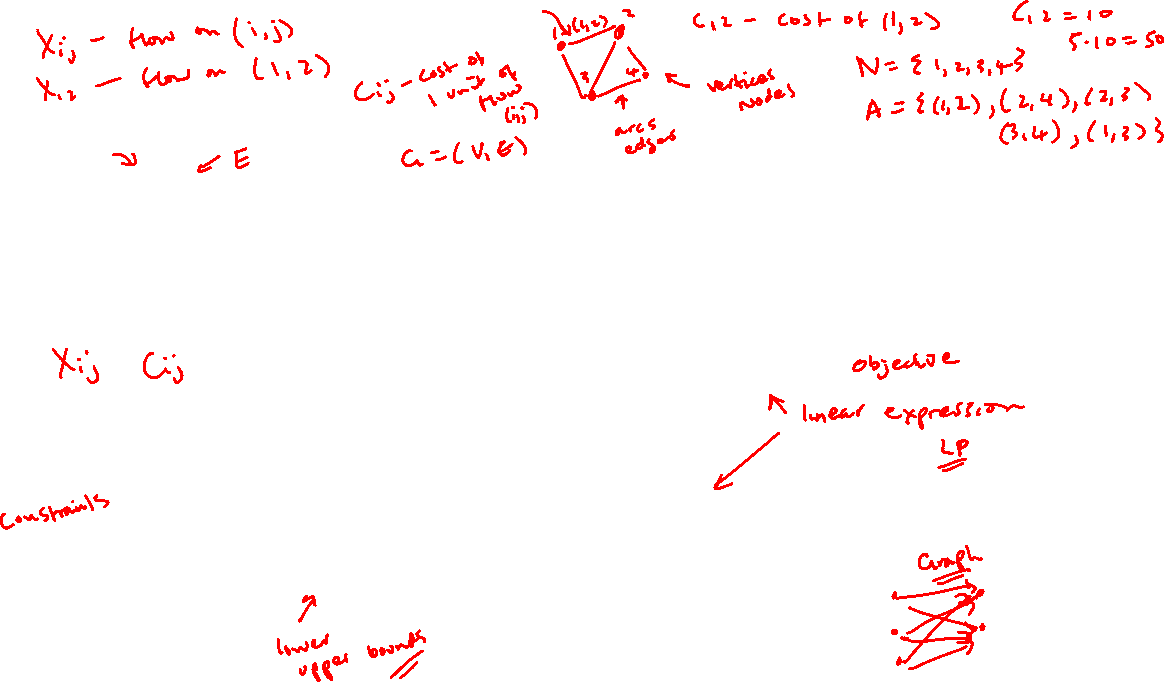 Xij - flow on (i,j)
X12 - flow on (1,2)
Cij - cost of
1 unit of
flow
(i,j)
E
G = (V, E)
(1,2)
1
2
3
4
vertices
nodes
arcs
edges
C12 - cost of (1,2)
C12 = 10
5·10 = 50
N = {1,2,3,4}
A = {(1,2), (2,4), (2,3)
(3,4), (1,3)}
Xij Cij
objective
linear expression
LP
Constraints
lower
upper bounds
Graph